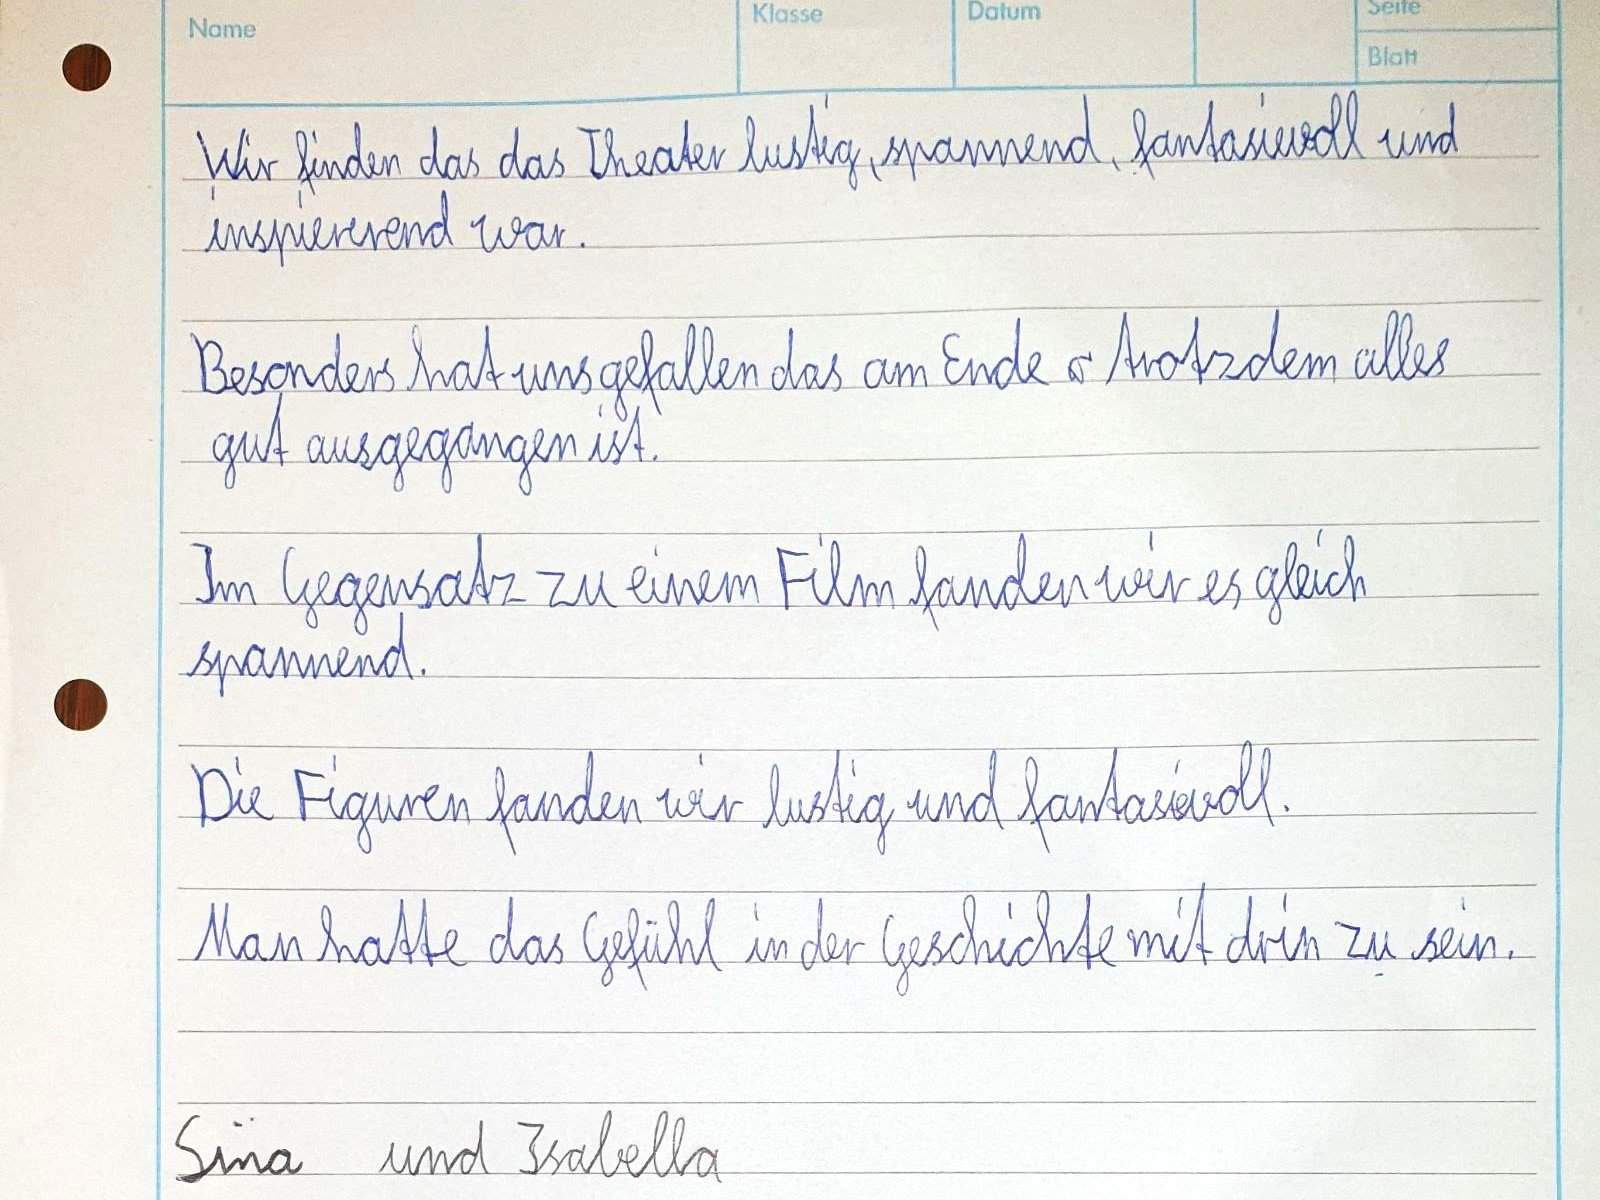 Name Klasse Datum Seite
Blatt
Wir finden das das Theater lustig, spannend, fantasievoll und
inspiererend war.
Besonders hat uns gefallen das am Ende trotzdem alles
gut ausgegangen ist.
Im Gegensatz zu einem Film fanden wir es gleich
spannend.
Die Figuren fanden wir lustig und fantasievoll.
Man hatte das Gefühl in der Geschichte mit drin zu sein.
Sina und Isabella